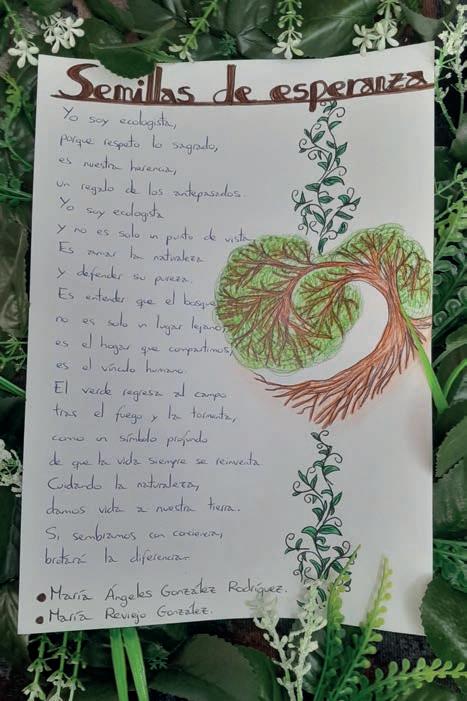 Semillas de esperanza
Yo soy ecologista,
porque respeto lo sagrado,
es nuestra herencia,
un regalo de los antepasados.
Yo soy ecologista
y no es solo un punto de vista
Es amar la naturaleza
y defender su pureza.
Es entender que el bosque
no es solo un lugar lejano,
es el hogar que compartimos,
es el vínculo humano.
El verde regresa al campo
tras el fuego y la tormenta,
como un símbolo profundo
de que la vida siempre se reinventa
Cuidando la naturaleza,
damos vida a nuestra tierra.
Si sembramos con conciencia,
brotará la diferencia.
María Ángeles González Rodríguez.
María Reviejo González.